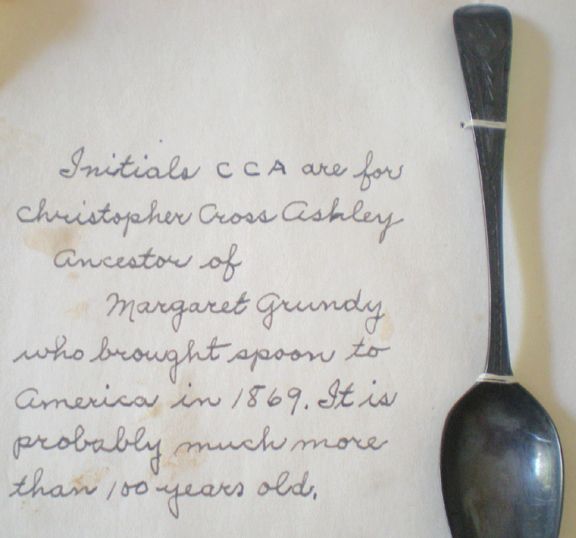 Initials C C A are for
Christopher Cross Ashley
Ancestor of
Margaret Grundy
who brought spoon to
America in 1869. It is
probably much more
than 100 years old.